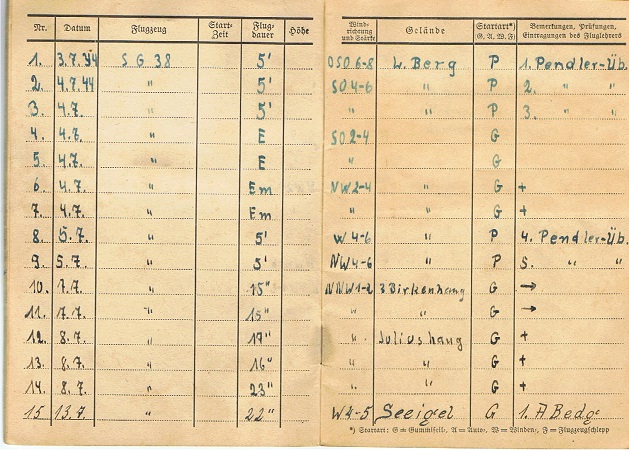 Nr. Datum Flugzeug Start-Zeit Flug-dauer Höhe Wind-richtung und Stärke Gelände Startart*) (G. A. W. F.) Bemerkungen, Prüfungen, Eintragungen des Fluglehrers
1. 3.7.44 SG 38 5' OSO 6-8 L. Berg P 1. Pendler-Üb.
2. 4.7.44 " 5' SO 4-6 " P 2. " "
3. 4.7. " 5' " " P 3. " "
4. 4.7. " E SO 2-4 G
5. 4.7. " E " G
6. 4.7. " Em NW 2-4 " G +
7. 4.7. " Em " " G +
8. 5.7. " 5' W 4-6 " P 4. Pendler-Üb.
9. 5.7. " 5' NW 4-6 " P 5. " "
10. 7.7. " 15" NNW 1-2 Birkenhang G →
11. 7.7. " 15" " " G →
12. 8.7. " 17" " Juliushang G +
13. 8.7. " 16" " " G +
14. 8.7. " 23" " " G +
15 13.7. " 22" W 4-5 Seeigel G 1. A Bedg.
*) Startart: G = Gummiseil, A = Auto, W = Winden, F = Flugzeugschlepp